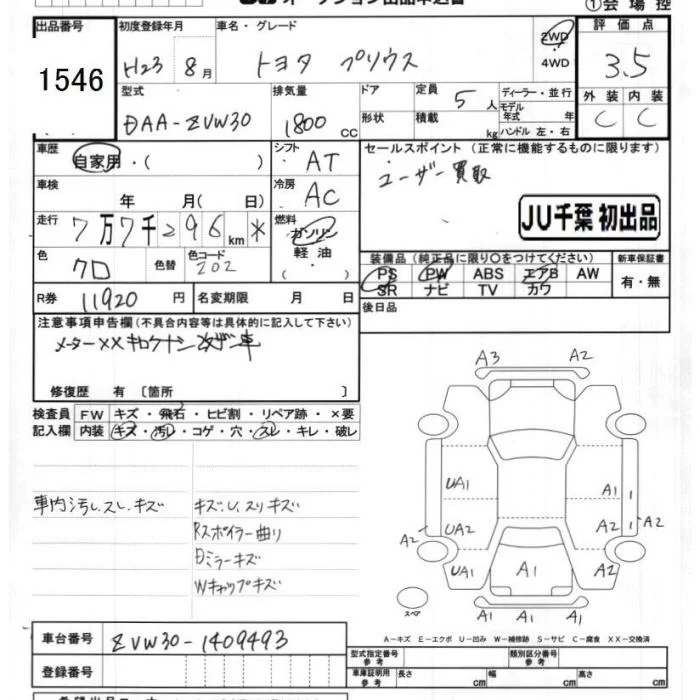 オークション出品申込書
①会場控
出品番号
1546
初度登録年月
H23 8月
車名・グレード
トヨタ プリウス
2WD
4WD
評価点
3.5
外装 内装
C C
型式
DAA-ZVW30
排気量
1800 cc
ドア
形状
定員
5人
積載
kg
ディーラー・並行
モデル年式 年
ハンドル 左・右
車歴
自家用・( )
シフト
AT
車検
年 月(日)
冷房
AC
セールスポイント (正常に機能するものに限ります)
ユーザー買取
JU千葉 初出品
走行
7万7千296km
燃料
ガソリン
軽油
・
色
クロ
色替
色コード
202
装備品 (純正品に限り○をつけてください)
PS PW ABS エアB AW
SR ナビ TV カワ
新車保証書
有・無
R券
11920円
名変期限 月 日
後日品
注意事項申告欄 (不具合内容等は具体的に記入して下さい)
メーター××
修復歴 有 〔箇所 〕
検査員記入欄
FW キズ・飛石・ヒビ割・リペア跡・×要
内装 キズ・汚レ・コゲ・穴・スレ・キレ・破レ
車内汚し.スレ.キズ
キズ.U.スリキズ
Rスポイラー曲り
Dミラーキズ
Wキャップキズ
A3 A2
UA1 A1
UA2 A2
A2 A2
UA1 A1 A2
スペア
A1 A1 A1
A-キズ E-エクボ U-凹み W-補修跡 S-サビ C-腐食 XX-交換済
車台番号
ZVW30-1409493
登録番号
型式指定番号 参考
類別区分番号 参考
車庫証明用 参考
長さ cm 幅 cm 高さ cm